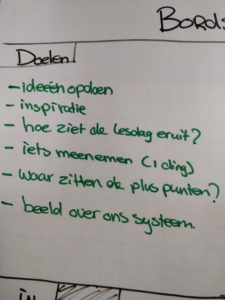 Bords
Doelen
- ideeën opdoen
- inspiratie
- hoe ziet de lesdag eruit?
- iets meenemen (1 ding)
- waar zitten de plus punten?
- beeld over ons systeem